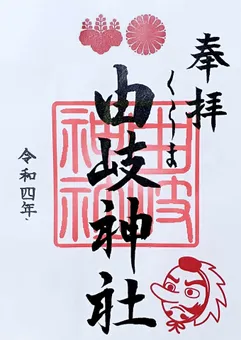 奉拝
くらま
由岐神社
由岐
神社
令和四年